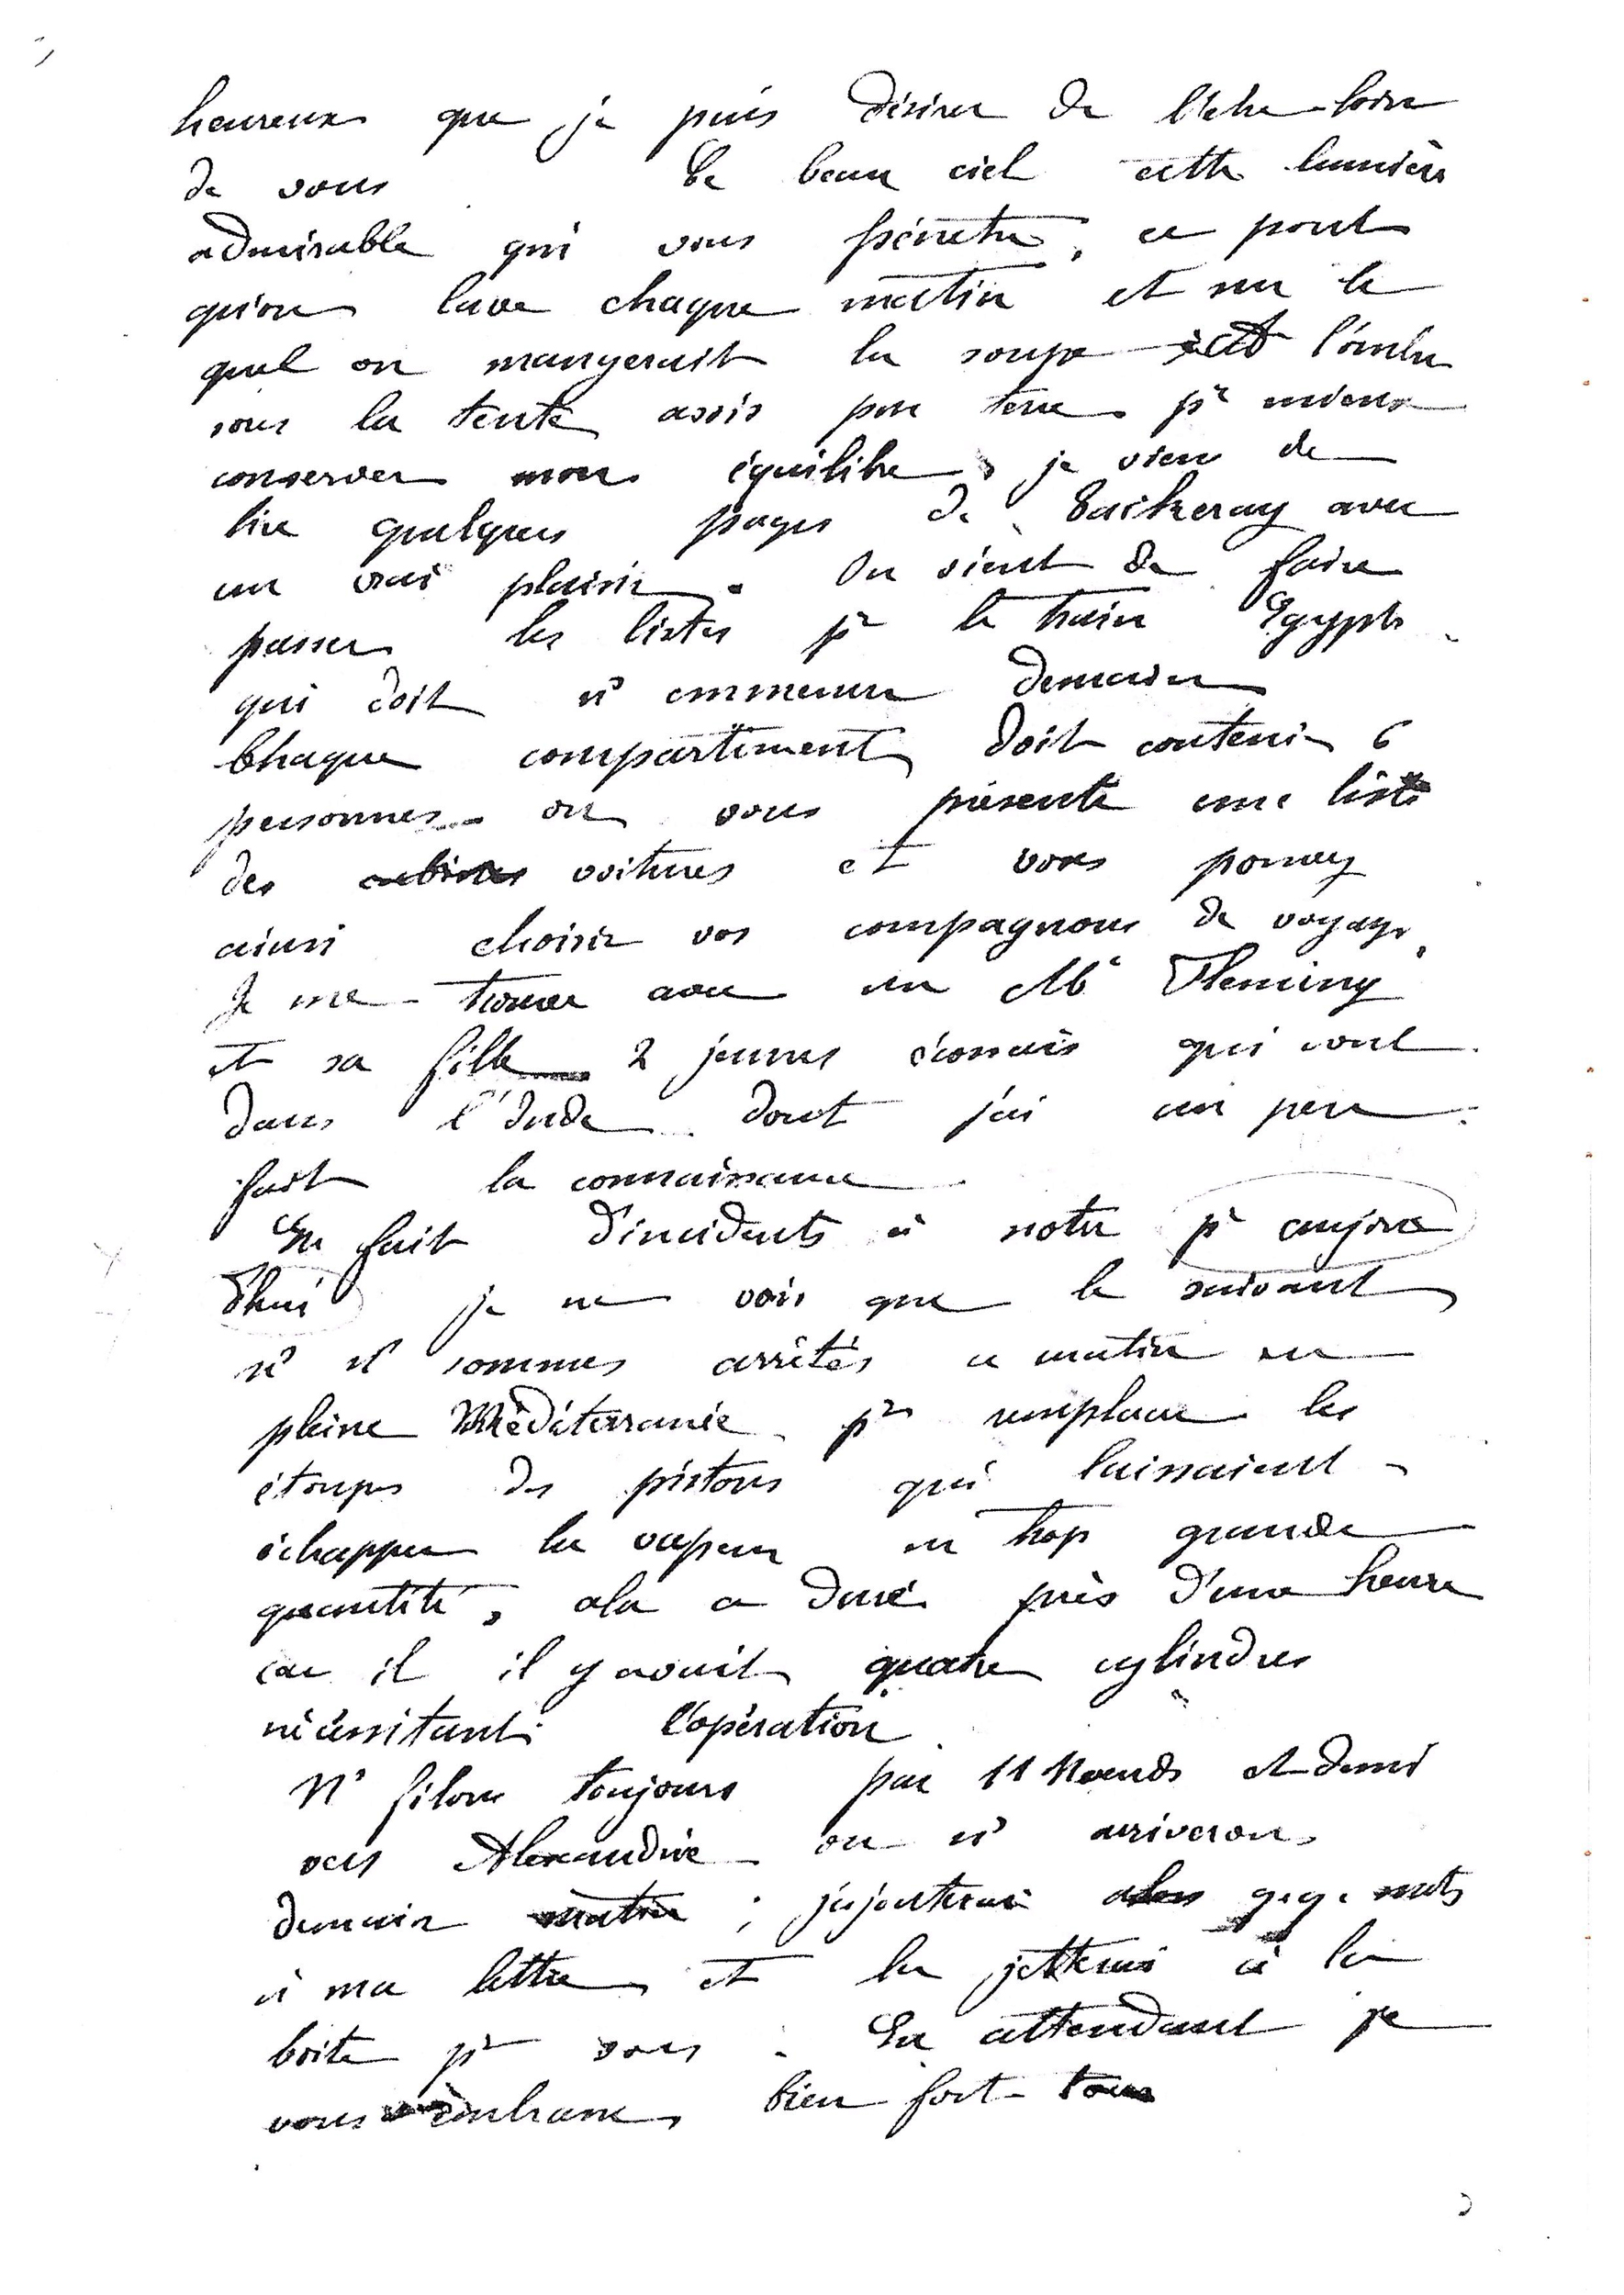 heureux que je puis désirer de l'être loin
de vous Ce beau ciel cette lumière
admirable qui vous pénètre, ce pont
qu'on lave chaque matin et sur le
quel on mangerait la soupe et l'ombre
sous la tente assis par terre pr mieux
conserver mon équilibre, je viens de
lire quelques pages de Tackeray avec
un vrai plaisir. On vient de faire
passer les listes pr le train Egypte
qui doit ns emmener demain
Chaque compartiment doit contenir 6
personnes - on vous présente une liste
des cabines voitures et vous pouvez
ainsi choisir vos compagnons de voyage.
Je me trouve avec un Mr Fleming
et sa fille 2 jeunes écossais qui vont
dans l'Inde dont j'ai un peu
fait la connaissance
En fait d'incidents à noter pr aujour
d'hui je ne vois que le suivant
ns ns sommes arrêtés ce matin en
pleine Méditerranée pr remplacer les
étoupes des pistons qui laissaient
échapper la vapeur en trop grande
quantité, cela a duré près d'une heure
car il il y avait quatre cylindres
nécessitant l'opération.
Ns filons toujours par 11 Noeuds et demi
vers Alexandrie ou ns arriverons
demain matin ; j'ajouterai alors qq. mots
à ma lettre et la jetterai à la
boite pr vous. En attendant je
vous embrasse bien fort tous